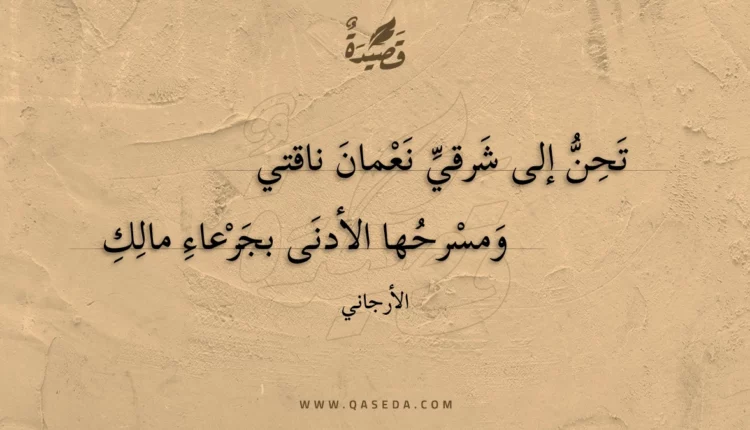 قَصِيْدَةٌ
تَحِنُّ إلى شَرقيِّ نَعْمانَ ناقتي
وَمسْرحُها الأدنَى بجَرْعاءِ مالِكِ
الأرجاني
WWW.QASEDA.COM